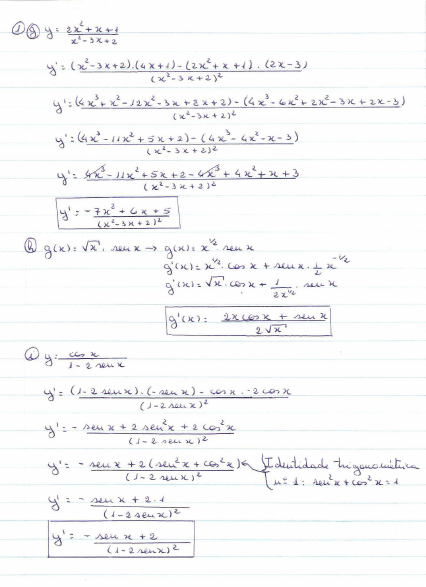 1) g) y = 2x² + x + 1 / x² - 3x + 2
y' = (x² - 3x + 2).(4x + 1) - (2x² + x + 1).(2x - 3) / (x² - 3x + 2)²
y' = (4x³ + x² - 12x² - 3x + 8x + 2) - (4x³ - 6x² + 2x² - 3x + 2x - 3) / (x² - 3x + 2)²
y' = (4x³ - 11x² + 5x + 2) - (4x³ - 4x² - x - 3) / (x² - 3x + 2)²
y' = 4x³ - 11x² + 5x + 2 - 4x³ + 4x² + x + 3 / (x² - 3x + 2)²
y' = -7x² + 6x + 5 / (x² - 3x + 2)²
h) g(x) = √x . sen x → g(x) = x^1/2 . sen x
g'(x) = x^1/2 . cos x + sen x . 1/2 x^-1/2
g'(x) = √x . cos x + 1/2x^1/2 . sen x
g'(x) = 2x cos x + sen x / 2√x
i) y = cos x / 1 - 2 sen x
y' = (1 - 2 sen x).(-sen x) - cos x . -2 cos x / (1 - 2 sen x)²
y' = - sen x + 2 sen² x + 2 cos² x / (1 - 2 sen x)²
y' = - sen x + 2 (sen² x + cos² x) / (1 - 2 sen x)² Identidade trigonométrica
nº 1: sen² x + cos² x = 1
y' = - sen x + 2 . 1 / (1 - 2 sen x)²
y' = - sen x + 2 / (1 - 2 sen x)²